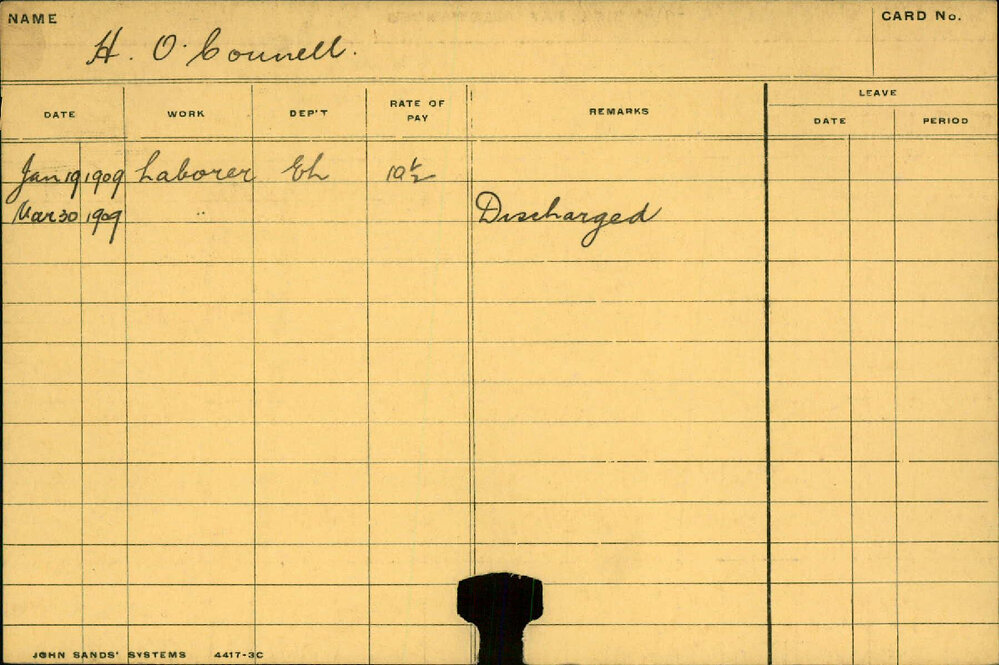 NAME
H. O'Connell.
CARD No.
DATE WORK DEP'T RATE OF PAY REMARKS LEAVE
DATE PERIOD
Jan 19 1909 Laborer Eh 10½
Mar 30 1909 " Discharged
JOHN SANDS' SYSTEMS 4417-3C